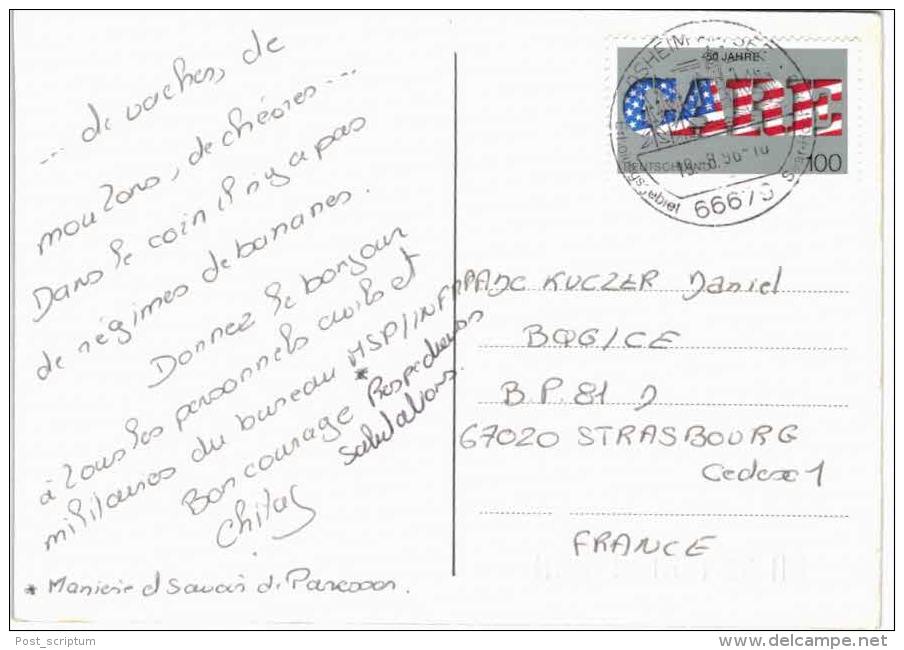 ... de vaches, de
moutons, de chèvres ...
Dans le coin il n'y a pas
de régimes de bananes.
Donnez le bonjour
à tous les personnels civils et
militaires du bureau MSP/INFRA
*
Bon courage Respectueuses
salutations.
Chitas
* et Savoir de
50 JAHRE
CARE
DEUTSCHLAND
100
19.8.96-10
66679
ADC KUCZER Daniel
BQG/CE
B.P. 81 D
67020 STRASBOURG
Cedex 1
FRANCE
Post_scriptum
delcampe.net